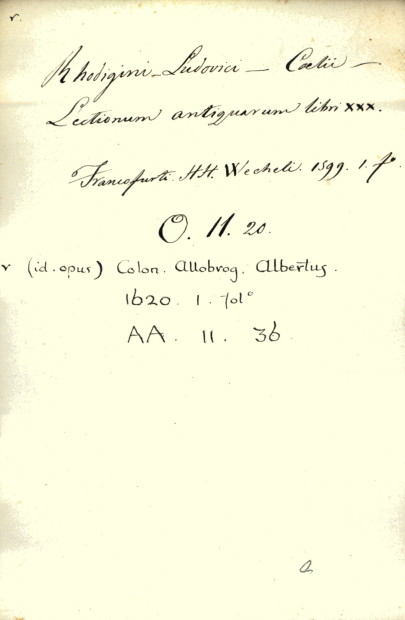 r.
Rhodigini - Ludovici - Coelii -
Lectionum antiquarum libri xxx.
Francofurti. HH. Wecheli. 1599. 1. fo.
O. 11. 20.
r (id. opus) Colon. Allobrog. Albertus.
1620. 1. fol°
AA. 11. 36